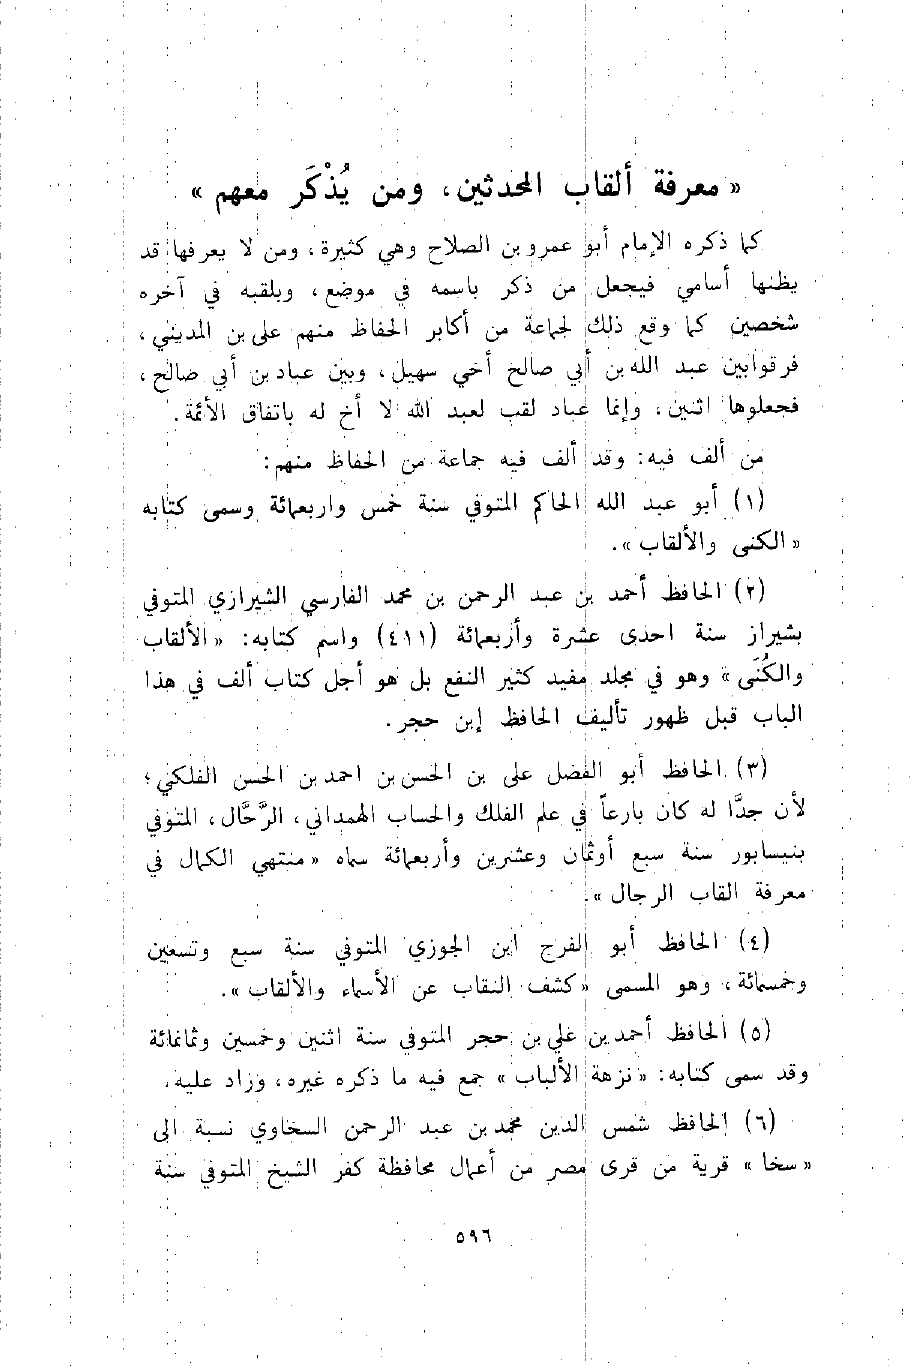 « معرفة ألقاب المحدثين، ومن يُذْكَر معهم »
كما ذكره الإمام أبو عمرو بن الصلاح وهي كثيرة، ومن لا يعرفها قد
يظنها أسامي فيجعل من ذكر باسمه في موضع، وبلقبه في آخره
شخصين كما وقع ذلك لجماعة من أكابر الحفاظ منهم على بن المديني،
فرقوا بين عبد الله بن أبي صالح أخي سهيل، وبين عباد بن أبي صالح،
فجعلوها اثنين، وإنما عباد لقب لعبد الله لا أخ له باتفاق الأئمة.
من ألف فيه: وقد ألف فيه جماعة من الحفاظ منهم:
(١) أبو عبد الله الحاكم المتوفي سنة خمس واربعمائة وسمى كتابه
« الكنى والألقاب ».
(٢) الحافظ أحمد بن عبد الرحمن بن محمد الفارسي الشيرازي المتوفي
بشيراز سنة احدى عشرة وأربعمائة (٤١١) واسم كتابه: « الألقاب
والكُنَى » وهو في مجلد مفيد كثير النفع بل هو أجل كتاب ألف في هذا
الباب قبل ظهور تأليف الحافظ إبن حجر.
(٣) الحافظ أبو الفضل على بن الحسن بن احمد بن الحسن الفلكي؛
لأن جدَّا له كان بارعاً في علم الفلك والحساب الهمداني، الرَّحَّال، المتوفي
بنيسابور سنة سبع أوثمان وعشرين وأربعمائة سماه « منتهي الكمال في
معرفة القاب الرجال ».
(٤) الحافظ أبو الفرج ابن الجوزي المتوفي سنة سبع وتسعين
وخمسمائة، وهو المسمى « كشف النقاب عن الأسماء والألقاب ».
(٥) الحافظ أحمد بن علي بن حجر المتوفي سنة اثنين وخمسين وثمانمائة
وقد سمى كتابه: « نزهة الألباب » جمع فيه ما ذكره غيره، وزاد عليه.
(٦) الحافظ شمس الدين محمد بن عبد الرحمن السخاوي نسبة الى
« سخا » قرية من قرى مصر من أعمال محافظة كفر الشيخ المتوفي سنة
٥٩٦